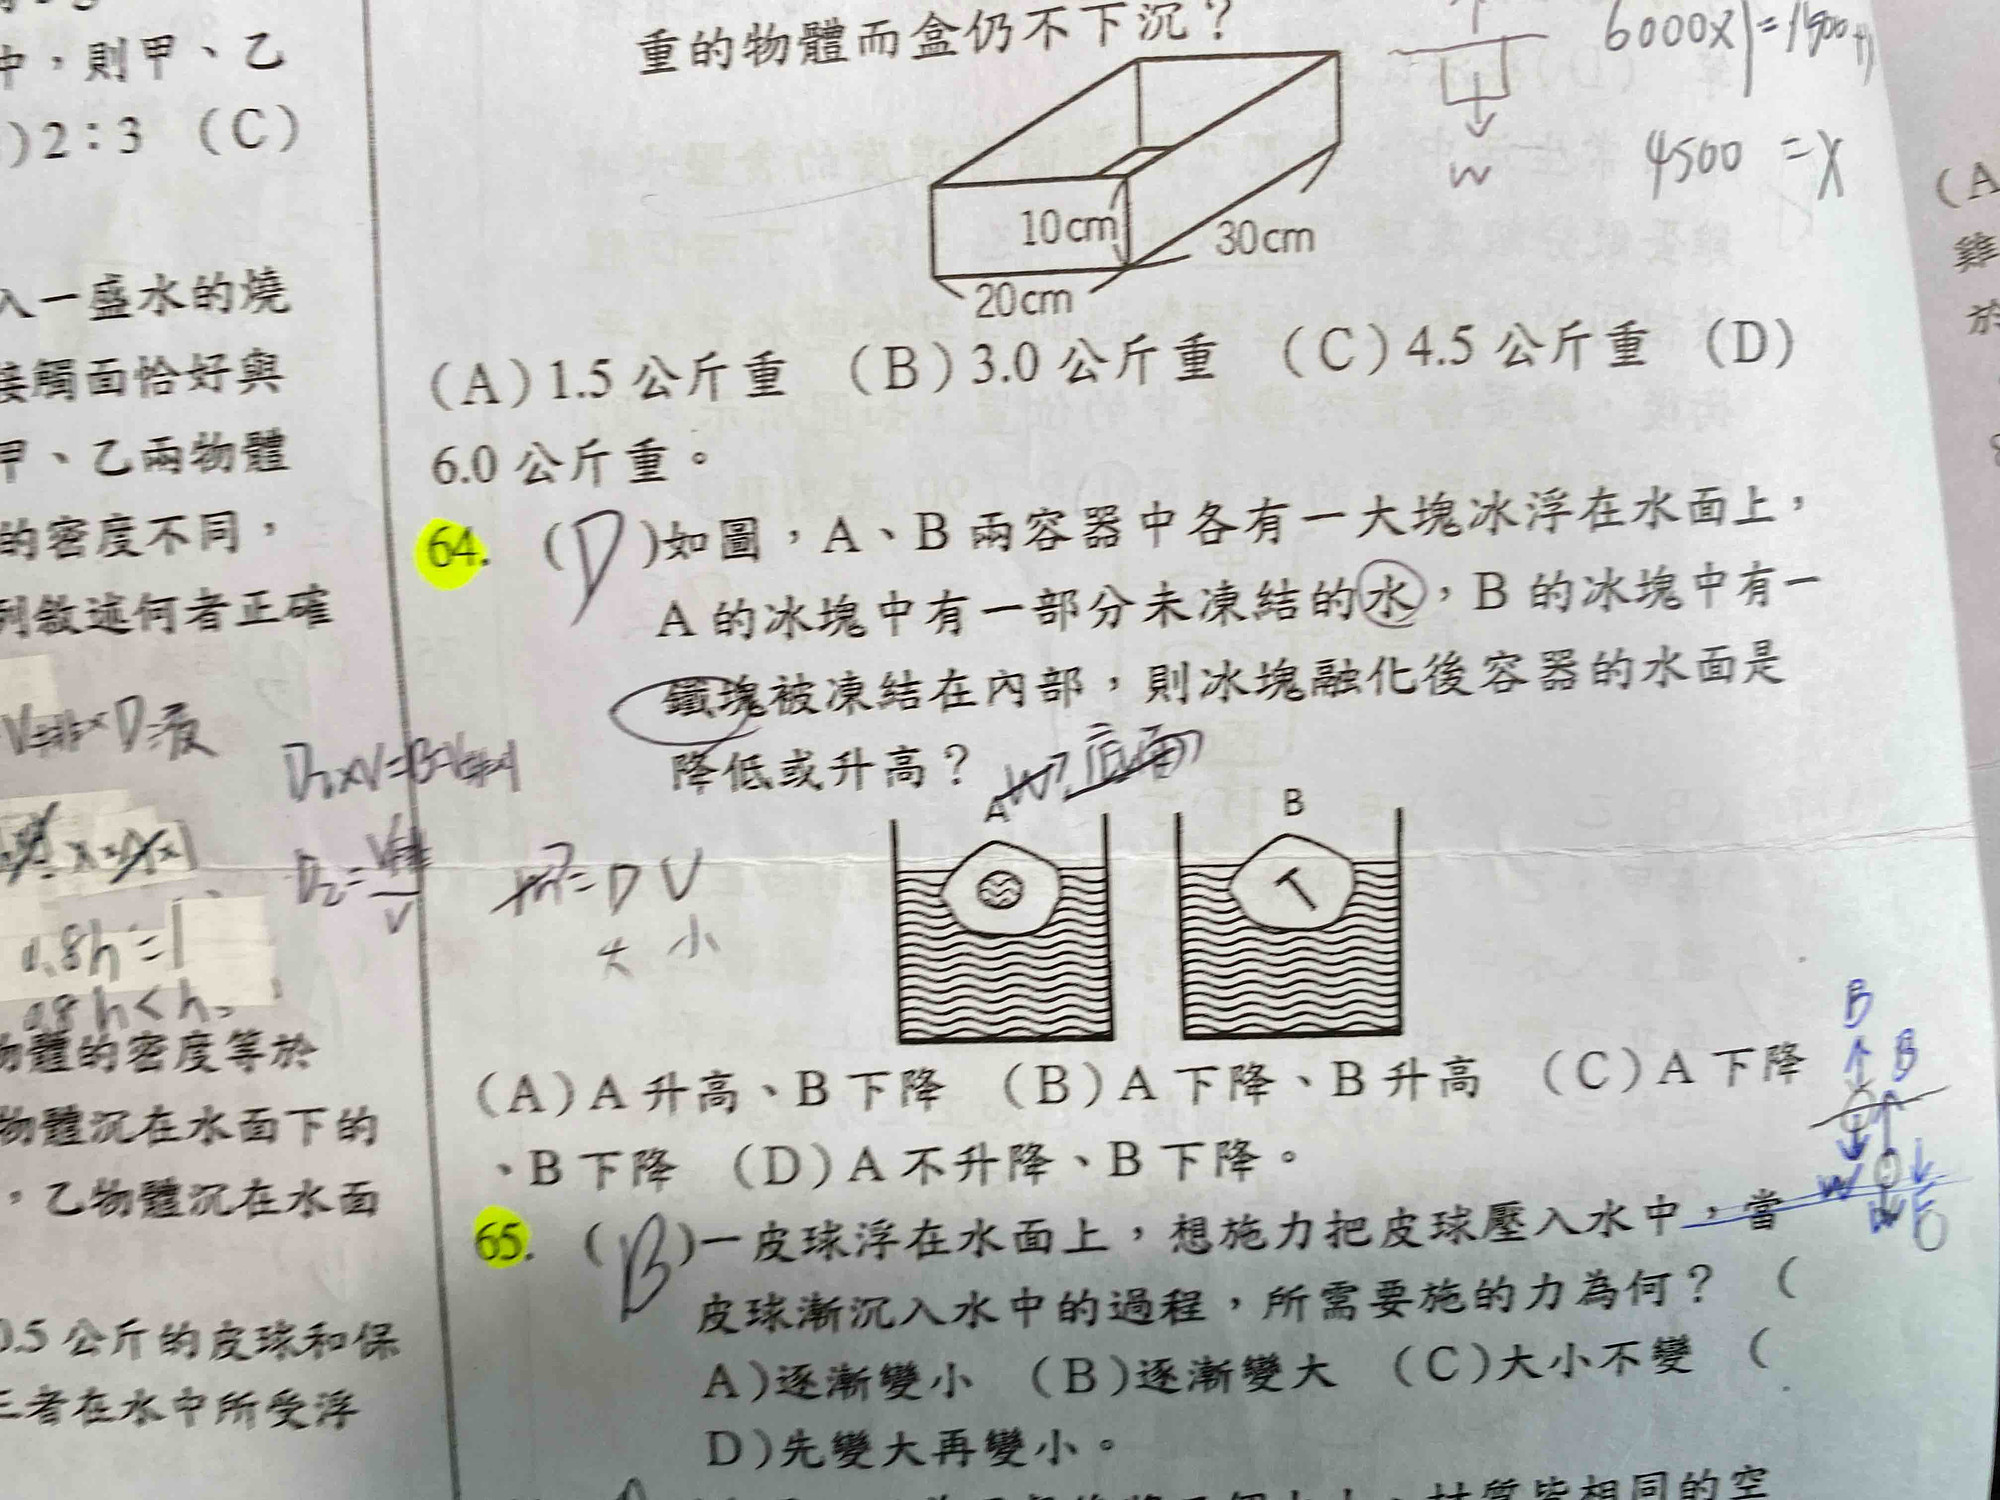 中，則甲、乙
)2：3 （C）
入一盛水的燒
接觸面恰好與
甲、乙兩物體
的密度不同，
列敘述何者正確
V排×D液
D2×V=B=V排×1
D2=V排/V
0.8h=1
0.8h<h
物體的密度等於
物體沉在水面下的
，乙物體沉在水面
0.5公斤的皮球和保
三者在水中所受浮
重的物體而盒仍不下沉？
10cm
30cm
20cm
W
6000×1=1500+
4500=X
（A）1.5公斤重 （B）3.0公斤重 （C）4.5公斤重 （D）
6.0公斤重。
64. （D）如圖，A、B兩容器中各有一大塊冰浮在水面上，
A的冰塊中有一部分未凍結的水，B的冰塊中有一
鐵塊被凍結在內部，則冰塊融化後容器的水面是
降低或升高？
A B
m=D V
大 小
（A）A升高、B下降 （B）A下降、B升高 （C）A下降
、B下降 （D）A不升降、B下降。
B
B
W
65. （B）一皮球浮在水面上，想施力把皮球壓入水中，當
皮球漸沉入水中的過程，所需要施的力為何？（
A）逐漸變小 （B）逐漸變大 （C）大小不變 （
D）先變大再變小。
（A
雞
於